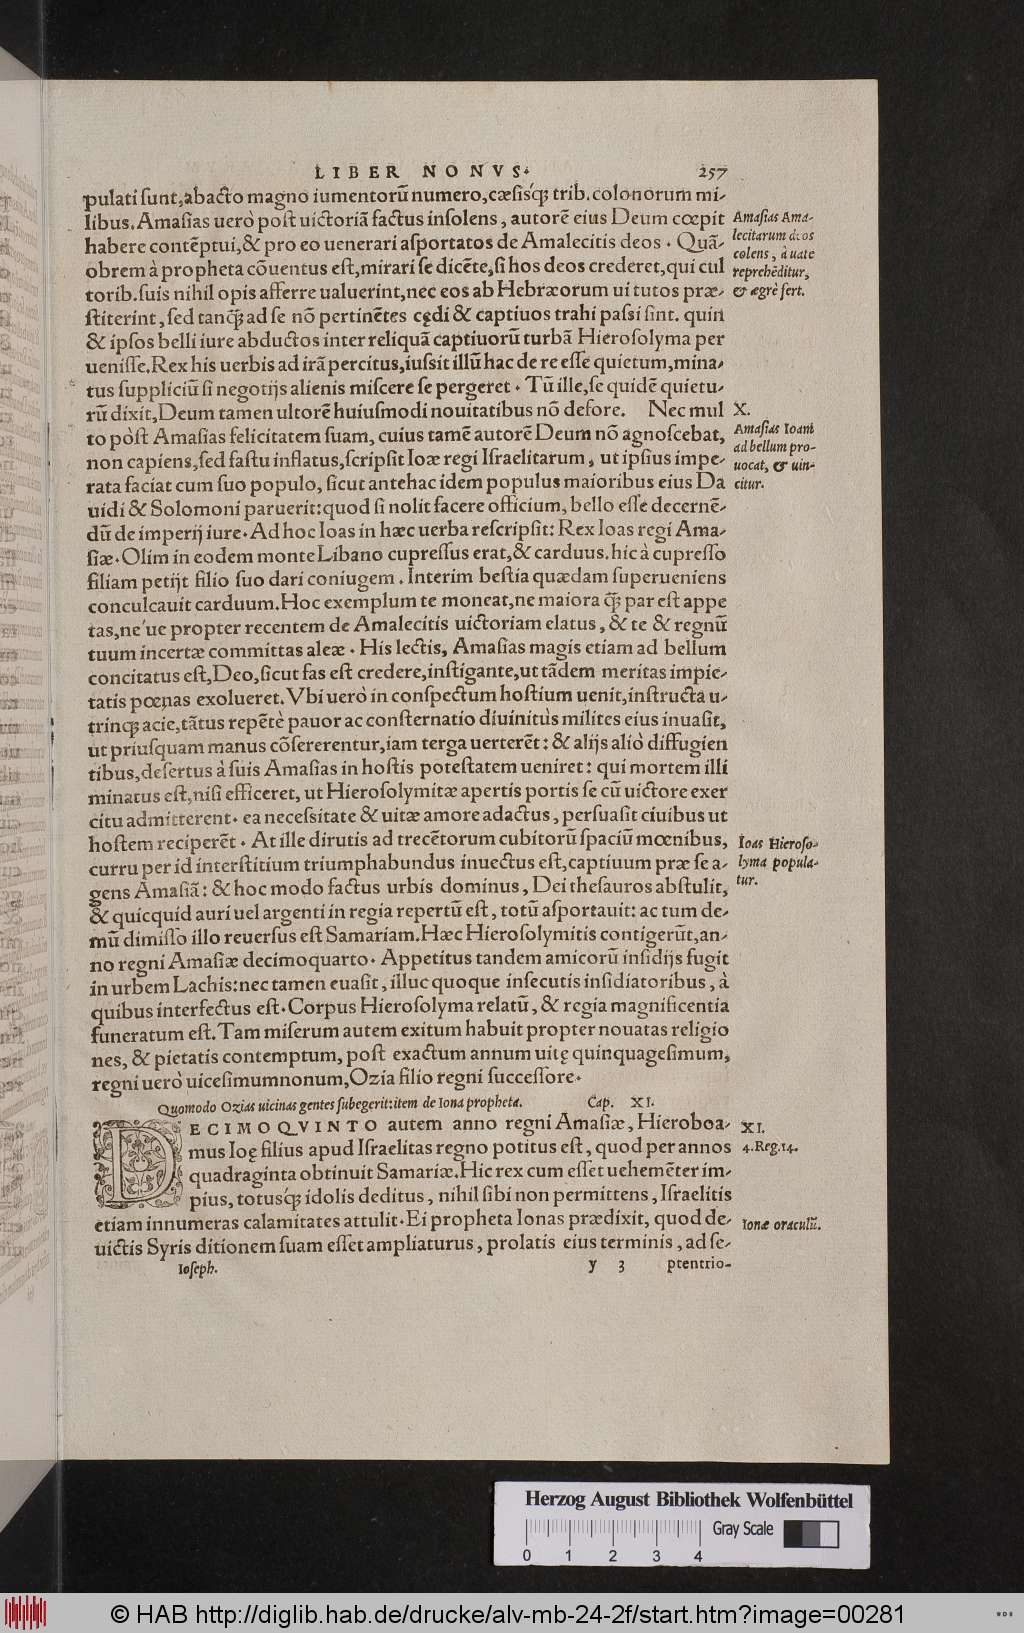 LIBER NONVS. 257
pulati sunt, abacto magno iumentorũ numero, cæsisq́ꝫ trib. colonorum mi-
libus. Amasias uerò post uictoriã factus insolens, autorẽ eius Deum cœpit
habere contẽptui, & pro eo uenerari asportatos de Amalecitis deos. Quã-
obrem à propheta cõuentus est, mirari se dicẽte, si hos deos crederet, qui cul
torib. suis nihil opis afferre ualuerint, nec eos ab Hebræorum ui tutos præ-
stiterint, sed tanq̃ꝫ ad se nõ pertinẽtes cędi & captiuos trahi passi sint. quin
& ipsos belli iure abductos inter reliquã captiuorũ turbã Hierosolyma per
uenisse. Rex his uerbis ad irã percitus, iussit illũ hac de re esse quietum, mina-
tus suppliciũ si negotijs alienis miscere se pergeret. Tũ ille, se quidẽ quietu-
rũ dixit, Deum tamen ultorẽ huiusmodi nouitatibus nõ defore. Nec mul
to pòst Amasias felicitatem suam, cuius tamẽ autorẽ Deum nõ agnoscebat,
non capiens, sed fastu inflatus, scripsit Ioæ regi Israelitarum, ut ipsius impe-
rata faciat cum suo populo, sicut antehac idem populus maioribus eius Da
uidi & Solomoni paruerit: quod si nolit facere officium, bello esse decernẽ-
dũ de imperij iure. Ad hoc Ioas in hæc uerba rescripsit: Rex Ioas regi Ama-
siæ. Olim in eodem monte Libano cupressus erat, & carduus. hic à cupresso
filiam petijt filio suo dari coniugem. Interim bestia quædam superueniens
conculcauit carduum. Hoc exemplum te moneat, ne maiora q̃ꝫ par est appe
tas, ne'ue propter recentem de Amalecitis uictoriam elatus, & te & regnũ
tuum incertæ committas aleæ. His lectis, Amasias magis etiam ad bellum
concitatus est, Deo, sicut fas est credere, instigante, ut tãdem meritas impie-
tatis pœnas exolueret. Vbi uerò in conspectum hostium uenit, instructa u-
trinqꝫ acie, tãtus repẽtè pauor ac consternatio diuinitùs milites eius inuasit,
ut priusquam manus cõsererentur, iam terga uerterẽt: & alijs aliò diffugien
tibus, desertus à suis Amasias in hostis potestatem ueniret: qui mortem illi
minatus est, nisi efficeret, ut Hierosolymitæ apertis portis se cũ uictore exer
citu admitterent. ea necessitate & uitæ amore adactus, persuasit ciuibus ut
hostem reciperẽt. At ille dirutis ad trecẽtorum cubitorũ spaciũ mœnibus,
curru per id interstitium triumphabundus inuectus est, captiuum præ se a-
gens Amasiã: & hoc modo factus urbis dominus, Dei thesauros abstulit,
& quicquid auri uel argenti in regia repertũ est, totũ asportauit: ac tum de-
mũ dimisso illo reuersus est Samariam. Hæc Hierosolymitis contigerũt, an-
no regni Amasiæ decimoquarto. Appetitus tandem amicorũ insidijs fugit
in urbem Lachis: nec tamen euasit, illuc quoque insecutis insidiatoribus, à
quibus interfectus est. Corpus Hierosolyma relatũ, & regia magnificentia
funeratum est. Tam miserum autem exitum habuit propter nouatas religio
nes, & pietatis contemptum, post exactum annum uitę quinquagesimum,
regni uerò uicesimumnonum, Ozia filio regni successore.
Quomodo Ozias uicinas gentes subegerit: item de Iona propheta. Cap. XI.
DECIMOQVINTO autem anno regni Amasiæ, Hieroboa-
mus Ioę filius apud Israelitas regno potitus est, quod per annos
quadraginta obtinuit Samariæ. Hic rex cum esset uehemẽter im-
pius, totusq́ꝫ idolis deditus, nihil sibi non permittens, Israelitis
etiam innumeras calamitates attulit. Ei propheta Ionas prædixit, quod de-
uictis Syris ditionem suam esset ampliaturus, prolatis eius terminis, ad se-
Ioseph. y 3 ptentrio-
Amasias Ama-
lecitarum deos
colens, à uate
reprehẽditur,
& ægrè fert.
X.
Amasias Ioam
ad bellum pro-
uocat, & uin-
citur.
Ioas Hieroso-
lyma popula-
tur.
XI.
4. Reg. 14.
Ionæ oraculũ.
Herzog August Bibliothek Wolfenbüttel
Gray Scale
0 1 2 3 4
© HAB http://diglib.hab.de/drucke/alv-mb-24-2f/start.htm?image=00281